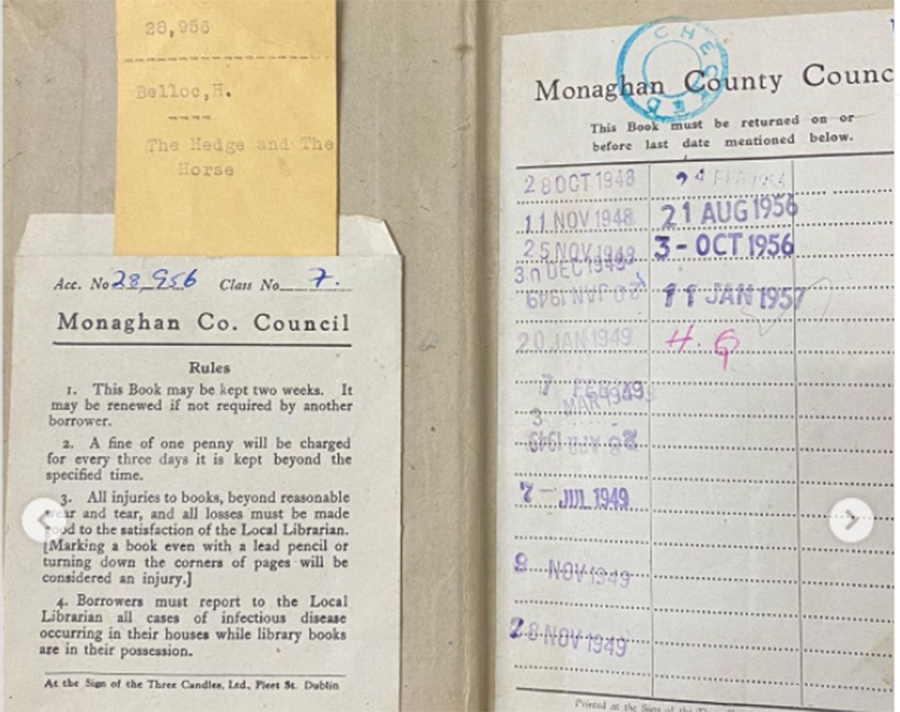 28,956
Belloc,H.
The Hedge and The
Horse
Acc. No 28,956 Class No. 7.
Monaghan Co. Council
Rules
1. This Book may be kept two weeks. It
may be renewed if not required by another
borrower.
2. A fine of one penny will be charged
for every three days it is kept beyond the
specified time.
3. All injuries to books, beyond reasonable
wear and tear, and all losses must be made
good to the satisfaction of the Local Librarian.
[Marking a book even with a lead pencil or
turning down the corners of pages will be
considered an injury.]
4. Borrowers must report to the Local
Librarian all cases of infectious disease
occurring in their houses while library books
are in their possession.
At the Sign of the Three Candles, Ltd., Fleet St. Dublin
Monaghan County Counc
This Book must be returned on or
before last date mentioned below.
28 OCT 1948
11 NOV 1948
25 NOV 1948
DEC 1948
20 JAN 1949
20 JAN 1949
7 FEB 1949
3 MAR 1949
1949
7 - JUL 1949
NOV 1949
28 NOV 1949
21 AUG 1956
3 - OCT 1956
11 JAN 1957
H. G
Printed at the Sign of the